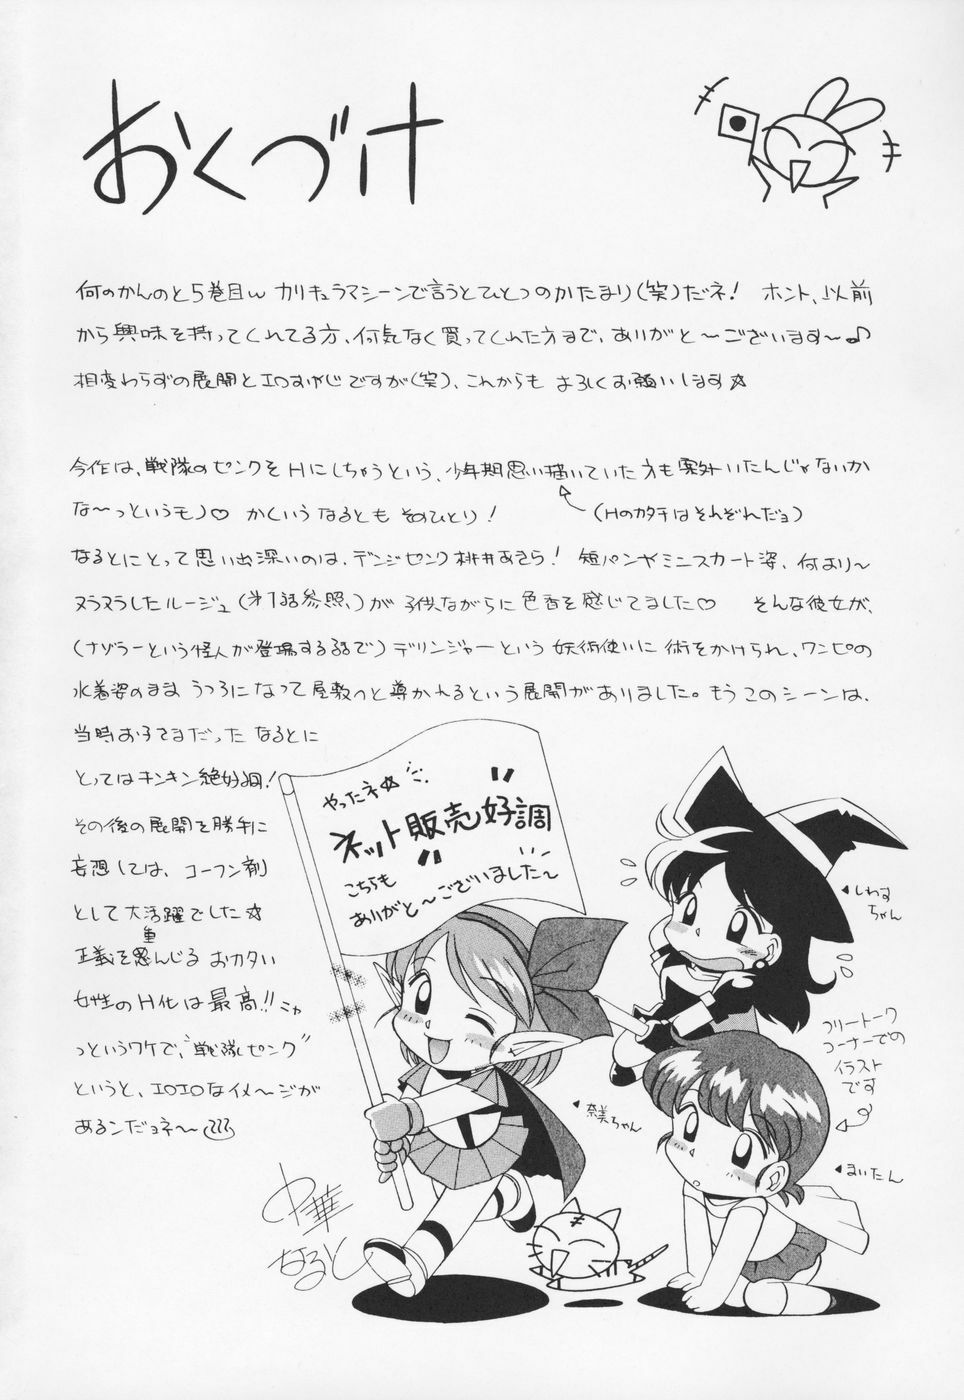 おくづけ
何のかんのと5巻目w カリキュラマシーンで言うとひとつのかたまり(笑)だネ! ホント、以前
から興味を持ってくれてる方、何気なく買ってくれた方まで、ありがと〜ございます〜♪
相変わらずの展開とエロオヤジですが(笑)、これからも よろしくお願いします☆
今作は、戦隊のピンクをHにしちゃうという、少年期思い描いていた方も案外いたんじゃないか
な〜っというモノ♡ かくいう なるとも そのひとり!
(Hのカタチはそれぞれだョ)
なるとにとって思い出深いのは、デンジピンク桃井あきら! 短パンやミニスカート姿、何より〜
ヌラヌラしたルージュ(第1話参照、)が 子供ながらに 色香を感じてました♡ そんな彼女が、
(ナゾラーという怪人が登場する話で)デリンジャーという 妖術使いに 術をかけられ、ワンピの
水着姿のまま うつろになって屋敷へと導かれるという展開がありました。もう このシーンは、
当時お子さまだった なるとに
とってはキンキン絶好調!
その後の展開を勝手に
妄想しては、コーフン剤
として大活躍でした☆
正義を重んじる おカタい
女性のH化は最高!!ニャ
っというワケで、"戦隊ピンク"
というと、エロエロなイメ〜ジが
あるンだョネ〜
中華
なると
やったネ☆
"ネット販売好調"
こちらも
ありがと〜ございました〜
しわす
ちゃん
フリートーク
コーナーでの
イラスト
です
奈美ちゃん
まいたん